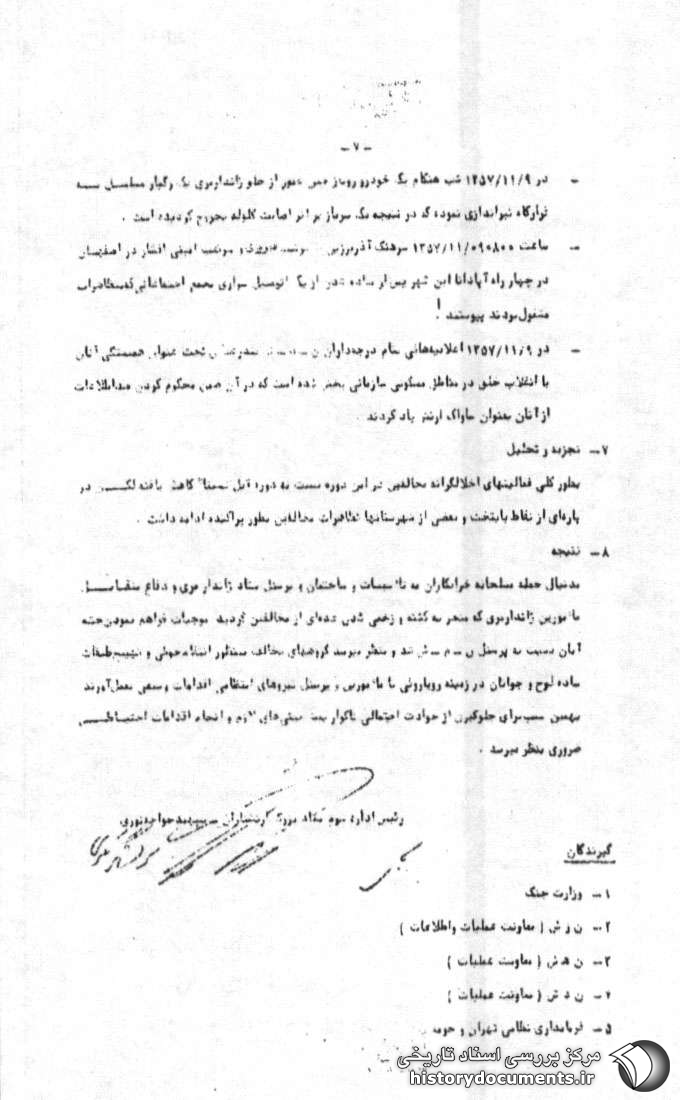 ـ ۷ ـ
ـ در ۱۳۵۷/۱۱/۹ شب هنگام یک خودرو روباز ضمن عبور از جلو ژاندارمری یک رگبار مسلسل بسمت
قرارگاه تیراندازی نموده که در نتیجه یک سرباز بر اثر اصابت گلوله مجروح گردیده است .
ـ ساعت ۱۳۵۷/۱۱/۰۹۰۸۰۰ سرهنگ آذربرزین و امینی افشار در اصفهان
در چهار راه آپادانا این شهر پس از پیاده شدن از یک اتومبیل سواری بجمع اجتماعاتی که بتظاهرات
مشغول بودند پیوستند !
ـ در ۱۳۵۷/۱۱/۹ اعلامیه‌هائی بنام درجه‌داران تحت عنوان همبستگی آنان
با انقلاب خلق در مناطق مسکونی سازمانی پخش شده است که در آن ضمن محکوم کردن ضداطلاعات
از آنان بعنوان ساواک ارتش یاد کردند .
۷ـ تجزیه و تحلیل
بطور کلی فعالیتهای اخلالگرانه مخالفین در این دوره نسبت به دوره قبل نسبتا" کاهش یافته لکن در
پاره‌ای از نقاط پایتخت و بعضی از شهرستانها تظاهرات مخالفین بطور پراکنده ادامه داشت .
۸ـ نتیجه
بدنبال حمله مسلحانه خرابکاران به تاسیسات و ساختمان و پرسنل ستاد ژاندارمری و دفاع متقابل
مامورین ژاندارمری که منجر به کشته و زخمی شدن عده‌ای از مخالفین گردید موجبات فراهم نمودن
آنان نسبت به پرسنل شد و بنظر میرسد گروههای مخالف بمنظور انتقامجوئی و تهییج طبقات
ساده لوح و جوانان در زمینه رویاروئی با مامورین و پرسنل نیروهای انتظامی اقدامات وسیعی بعمل آورند
بهمین سبب برای جلوگیری از حوادث احتمالی ناگوار پیش بینی‌های لازم و انجام اقدامات احتیاطی
ضروری بنظر میرسد .
رئیس اداره سوم ستاد بزرگ ارتشتاران ـ سپهبد خواجه‌نوری
گیرندگان
۱ـ وزارت جنگ
۲ـ ن ز ش ( معاونت عملیات واطلاعات )
۳ـ ن ه ش ( معاونت عملیات )
۴ـ ن د ش ( معاونت عملیات )
۵ـ فرمانداری نظامی تهران و حومه
مرکز بررسی اسناد تاریخی
historydocuments.ir